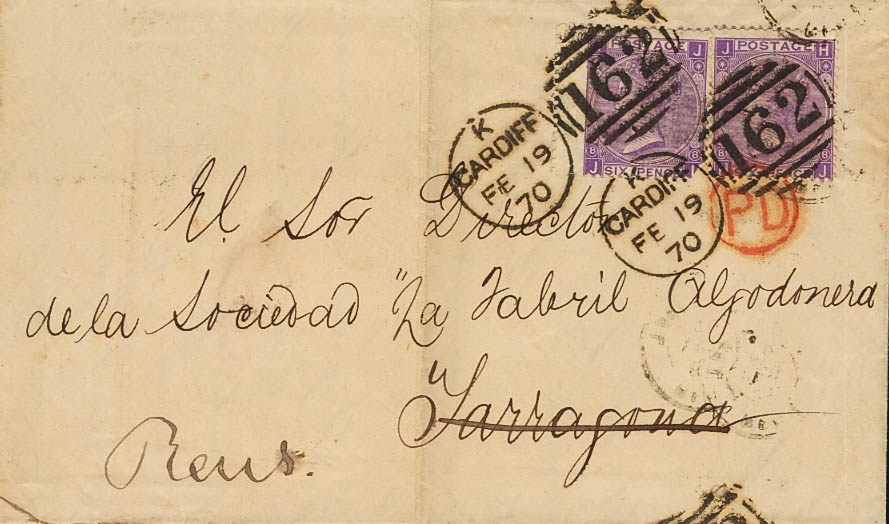 POSTAGE J J POSTAGE H
162 162
8 8 8
J SIX PENCE SIX PENCE J
K
CARDIFF
FE 19
70
K
CARDIFF
FE 19
70
PD
El Sor Director
de la Sociedad "La Fabril Algodonera
"Tarragona
Reus.